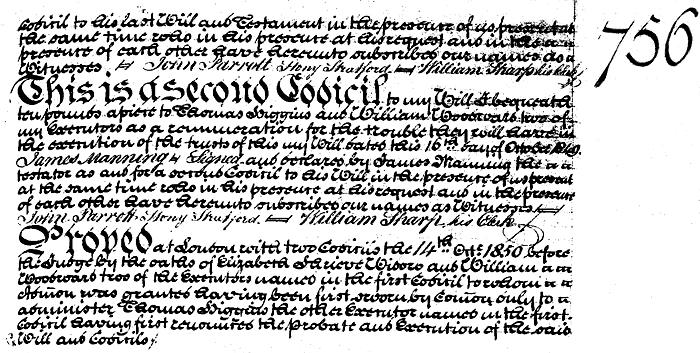 Codicil to his last Will and Testament in the presence of us present at
the same time who in his presence at his request and in the
presence of each other have hereunto subscribed our names as
Witnesses John Parrott Stony Stratford William Sharp his Clerk
756
This is a second Codicil to my Will I bequeath
ten pounds apiece to Thomas Higgins and William Woodward two of
my Executors as a remuneration for the trouble they will have in
the execution of the trusts of this my Will dated this 16th day of October 1849
James Manning Signed and declared by James Manning the
testator as and for a second Codicil to his Will in the presence of us present
at the same time who in his presence at his request and in the presence
of each other have hereunto subscribed our names as Witnesses
John Parrott Stony Stratford William Sharp his Clerk
Proved at London with two Codicils the 14th Octr 1850 before
the Judge by the oaths of Elizabeth Shrieve Widow and William
Woodward two of the Executors named in the first Codicil to whom
admon was granted having been first sworn by Comon only to
administer Thomas Higgins the other Executor named in the first
Codicil having first renounced the probate and Execution of the said
Will and Codicils